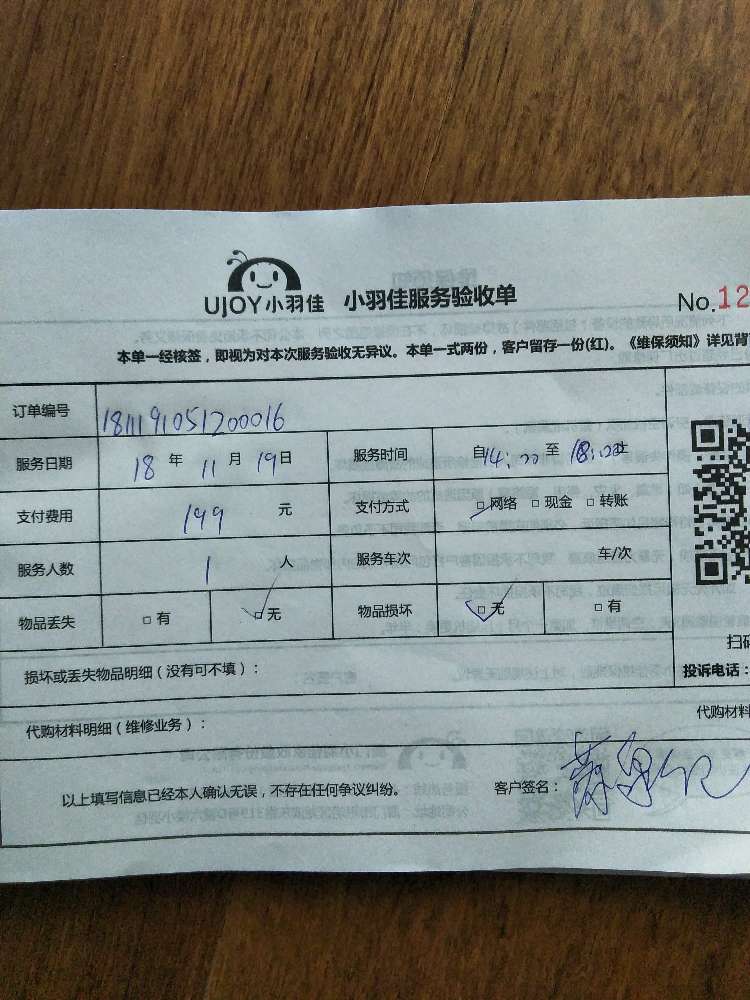 UJOY小羽佳 小羽佳服务验收单 No.12
本单一经核签，即视为对本次服务验收无异议。本单一式两份，客户留存一份(红)。《维保须知》详见背
订单编号 181191051200016
服务日期 18 年 11 月 19 日 服务时间 自 14:00 至 18:00 止
支付费用 199 元 支付方式 □ 网络 □ 现金 □ 转账
服务人数 1 人 服务车次 车/次
物品丢失 □ 有 □ 无 物品损坏 □ 无 □ 有
扫
损坏或丢失物品明细（没有可不填）： 投诉电话：
代购材料明细（维修业务）： 代购材料
以上填写信息已经本人确认无误，不存在任何争议纠纷。 客户签名：